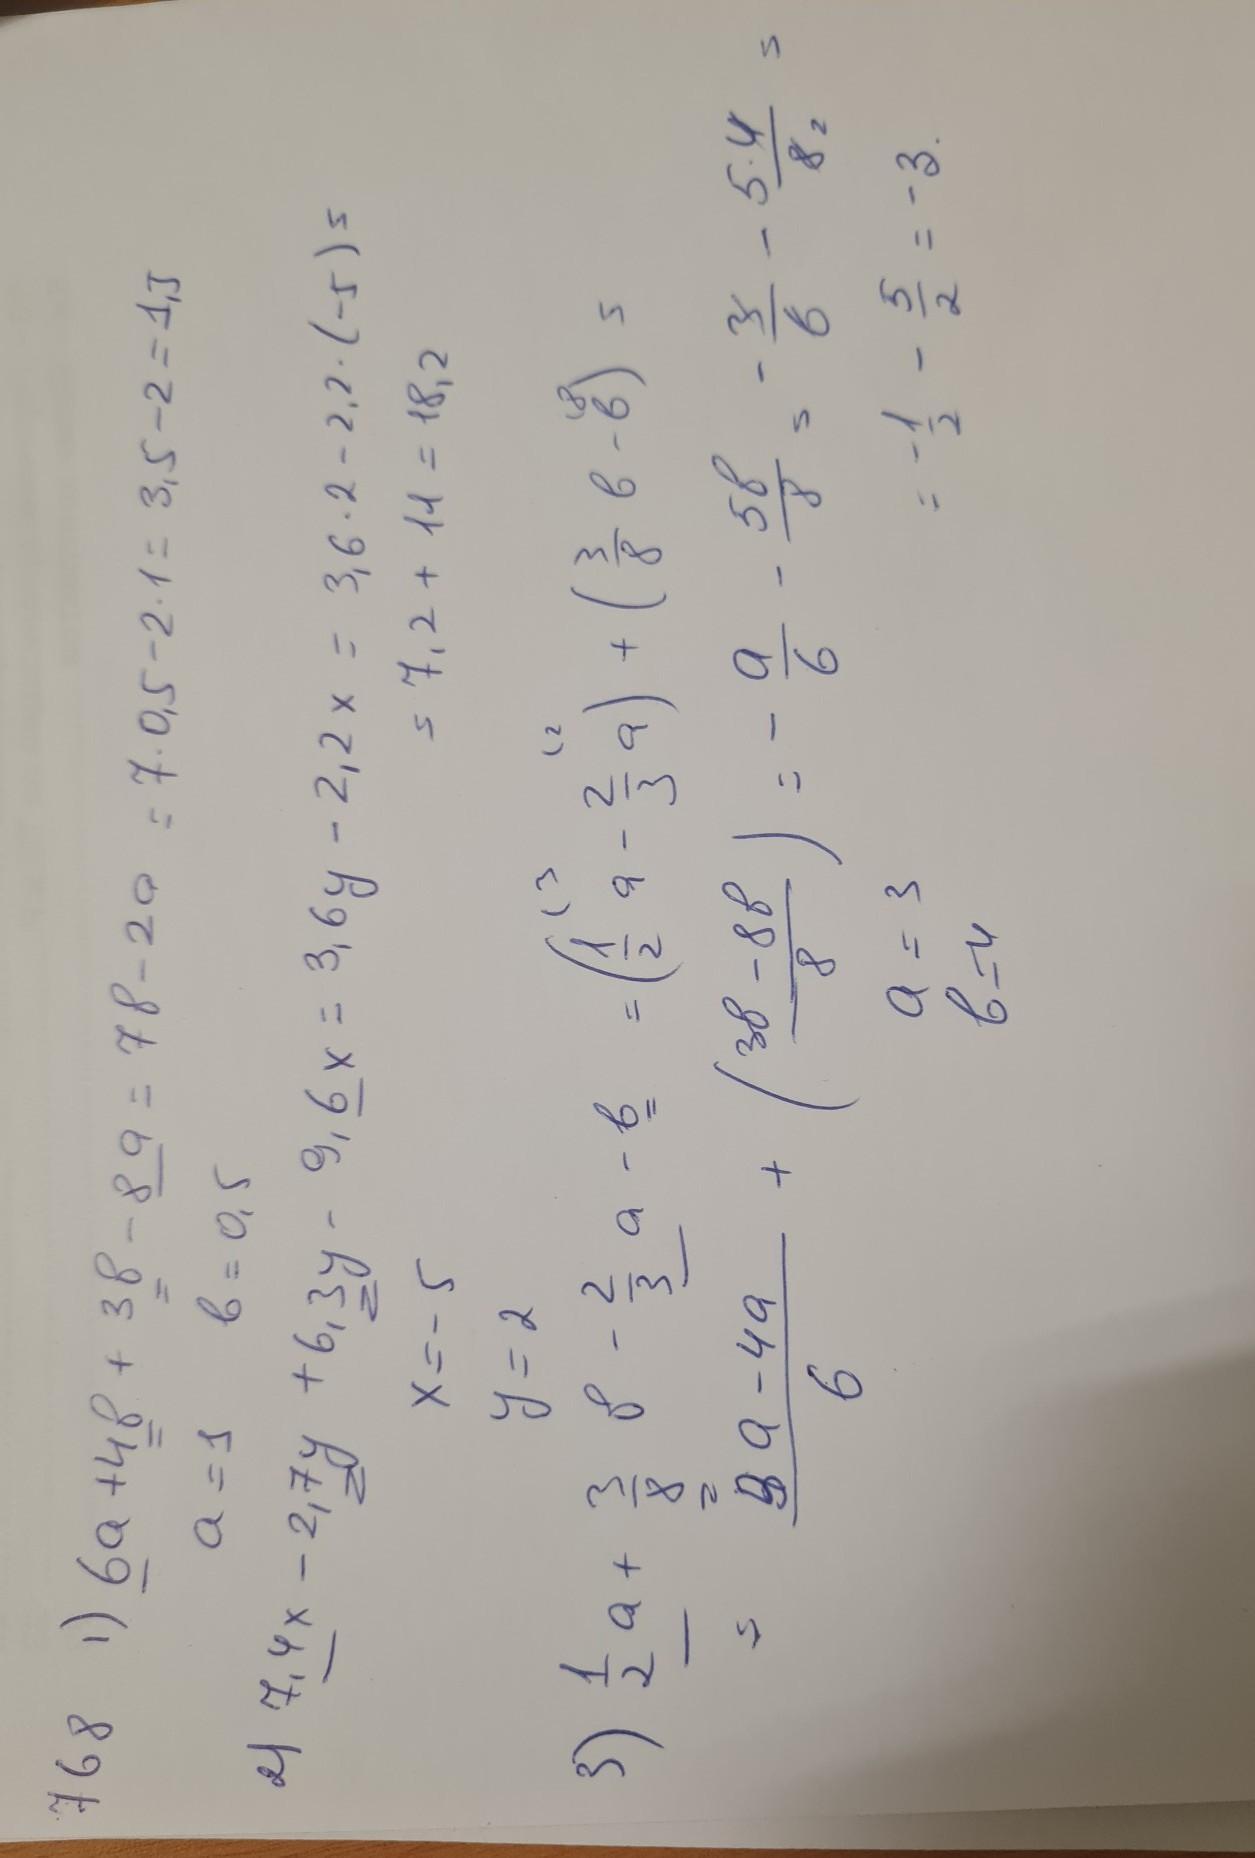 768 1) 6a + 4в + 3в - 8a = 7в - 2a = 7·0,5 - 2·1 = 3,5 - 2 = 1,5
a = 1 в = 0,5
2) 7,4x - 2,7y + 6,3y - 9,6x = 3,6y - 2,2x = 3,6·2 - 2,2·(-5) =
x = -5 = 7,2 + 11 = 18,2
y = 2
3) 1/2 a + 3/8 в - 2/3 a - в = (1/2 (3 a - 2/3 (2 a) + (3/8 в - в (8) =
= (3a - 4a)/6 + ((3в - 8в)/8) = - a/6 - 5в/8 = - 3/6 - 5·4/8 2 =
a = 3 = - 1/2 - 5/2 = -3.
в = 4